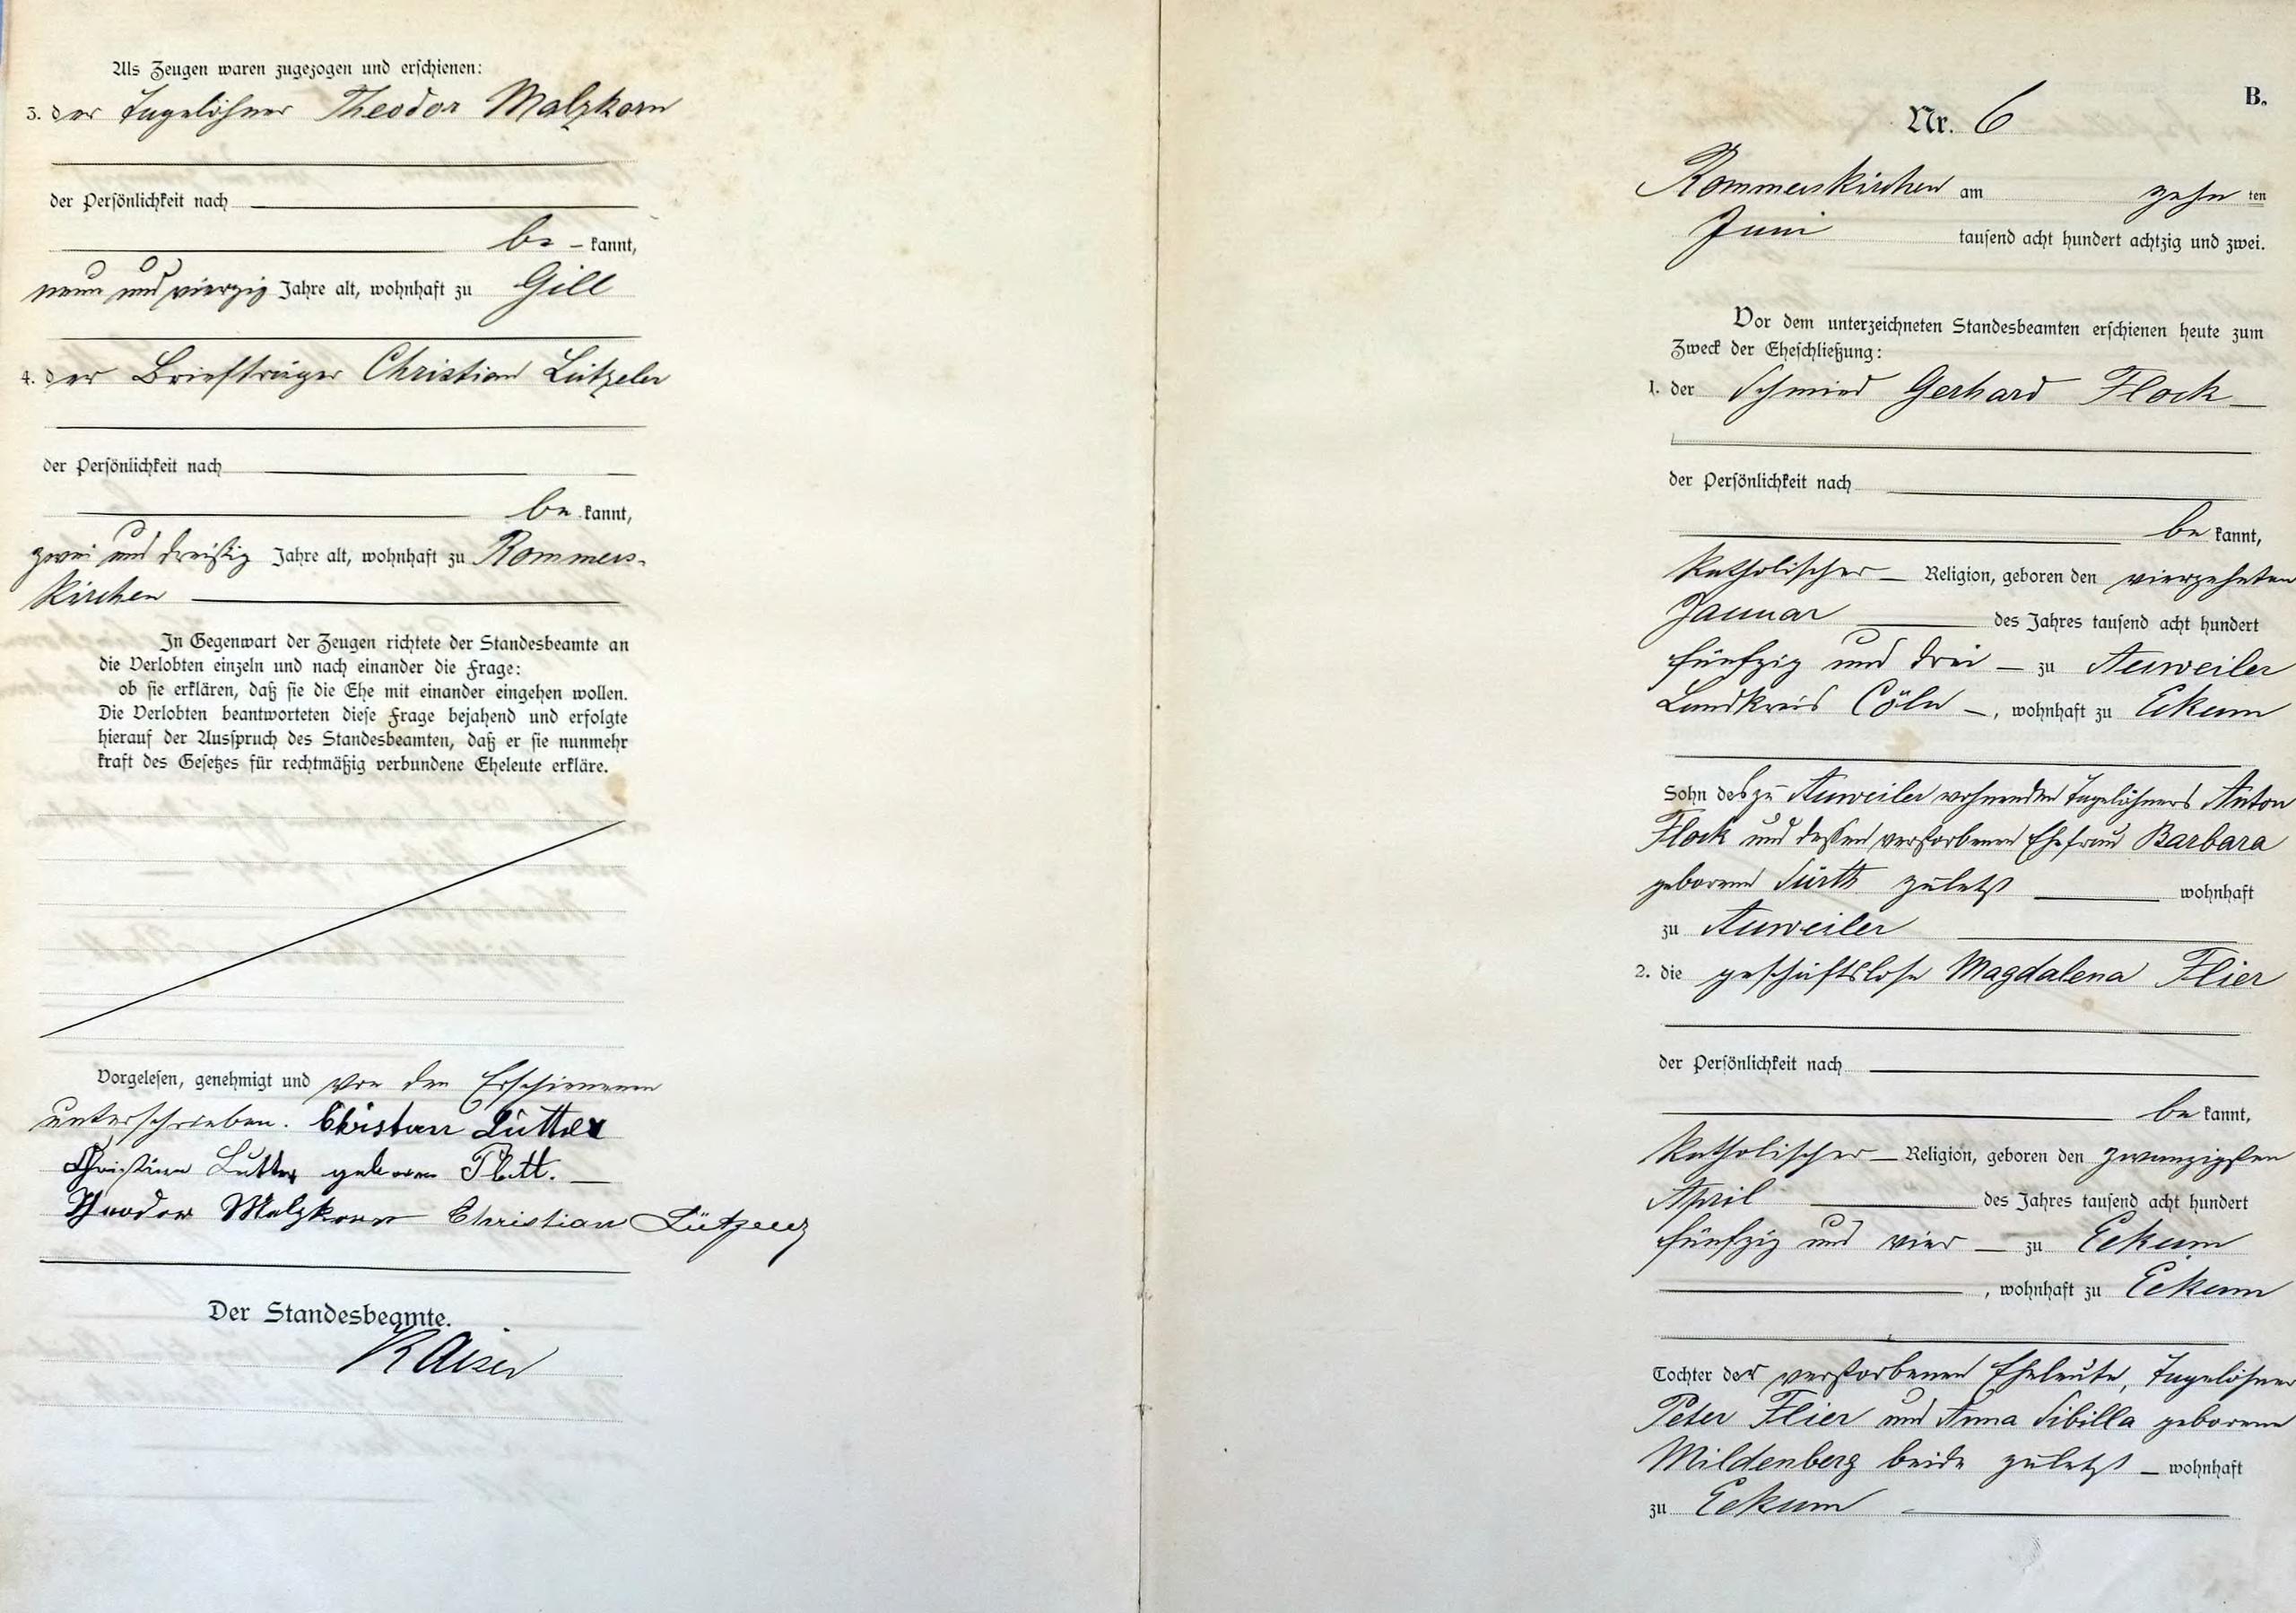 Als Zeugen waren zugezogen und erschienen:
3. der Tagelöhner Theodor Malzkorn
der Persönlichkeit nach
be - kannt,
neun und vierzig Jahre alt, wohnhaft zu Gill
4. der Briefträger Christian Lützeler
der Persönlichkeit nach
be kannt,
zwei und dreißig Jahre alt, wohnhaft zu Rommers-
kirchen
In Gegenwart der Zeugen richtete der Standesbeamte an
die Verlobten einzeln und nach einander die Frage:
ob sie erklären, daß sie die Ehe mit einander eingehen wollen.
Die Verlobten beantworteten diese Frage bejahend und erfolgte
hierauf der Ausspruch des Standesbeamten, daß er sie nunmehr
kraft des Gesetzes für rechtmäßig verbundene Eheleute erkläre.
Vorgelesen, genehmigt und von den Erschienenen
unterschrieben. Christian Lütter
Christina Lutter geborene Plett.
Theodor Malzkorn Christian Lützeler
Der Standesbeamte.
Kaiser
B.
Nr. 6
Rommerskirchen am zehn ten
Juni tausend acht hundert achtzig und zwei.
Vor dem unterzeichneten Standesbeamten erschienen heute zum
Zweck der Eheschließung:
1. der Schmied Gerhard Flock
der Persönlichkeit nach
be kannt,
katholischer Religion, geboren den vierzehnten
Januar des Jahres tausend acht hundert
fünfzig und drei - zu Auweiler
Landkreis Cöln -, wohnhaft zu Eckum
Sohn des zu Auweiler wohnenden Tagelöhners Anton
Flock und dessen verstorbenen Ehefrau Barbara
geborene Fürth zuletzt wohnhaft
zu Auweiler
2. die geschäftslose Magdalena Flier
der Persönlichkeit nach
be kannt,
katholischer Religion, geboren den zwanzigsten
April des Jahres tausend acht hundert
fünfzig und vier - zu Eckum
, wohnhaft zu Eckum
Tochter der verstorbenen Eheleute, Tagelöhner
Peter Flier und Anna Sibilla geborene
Mildenberg beide zuletzt - wohnhaft
zu Eckum